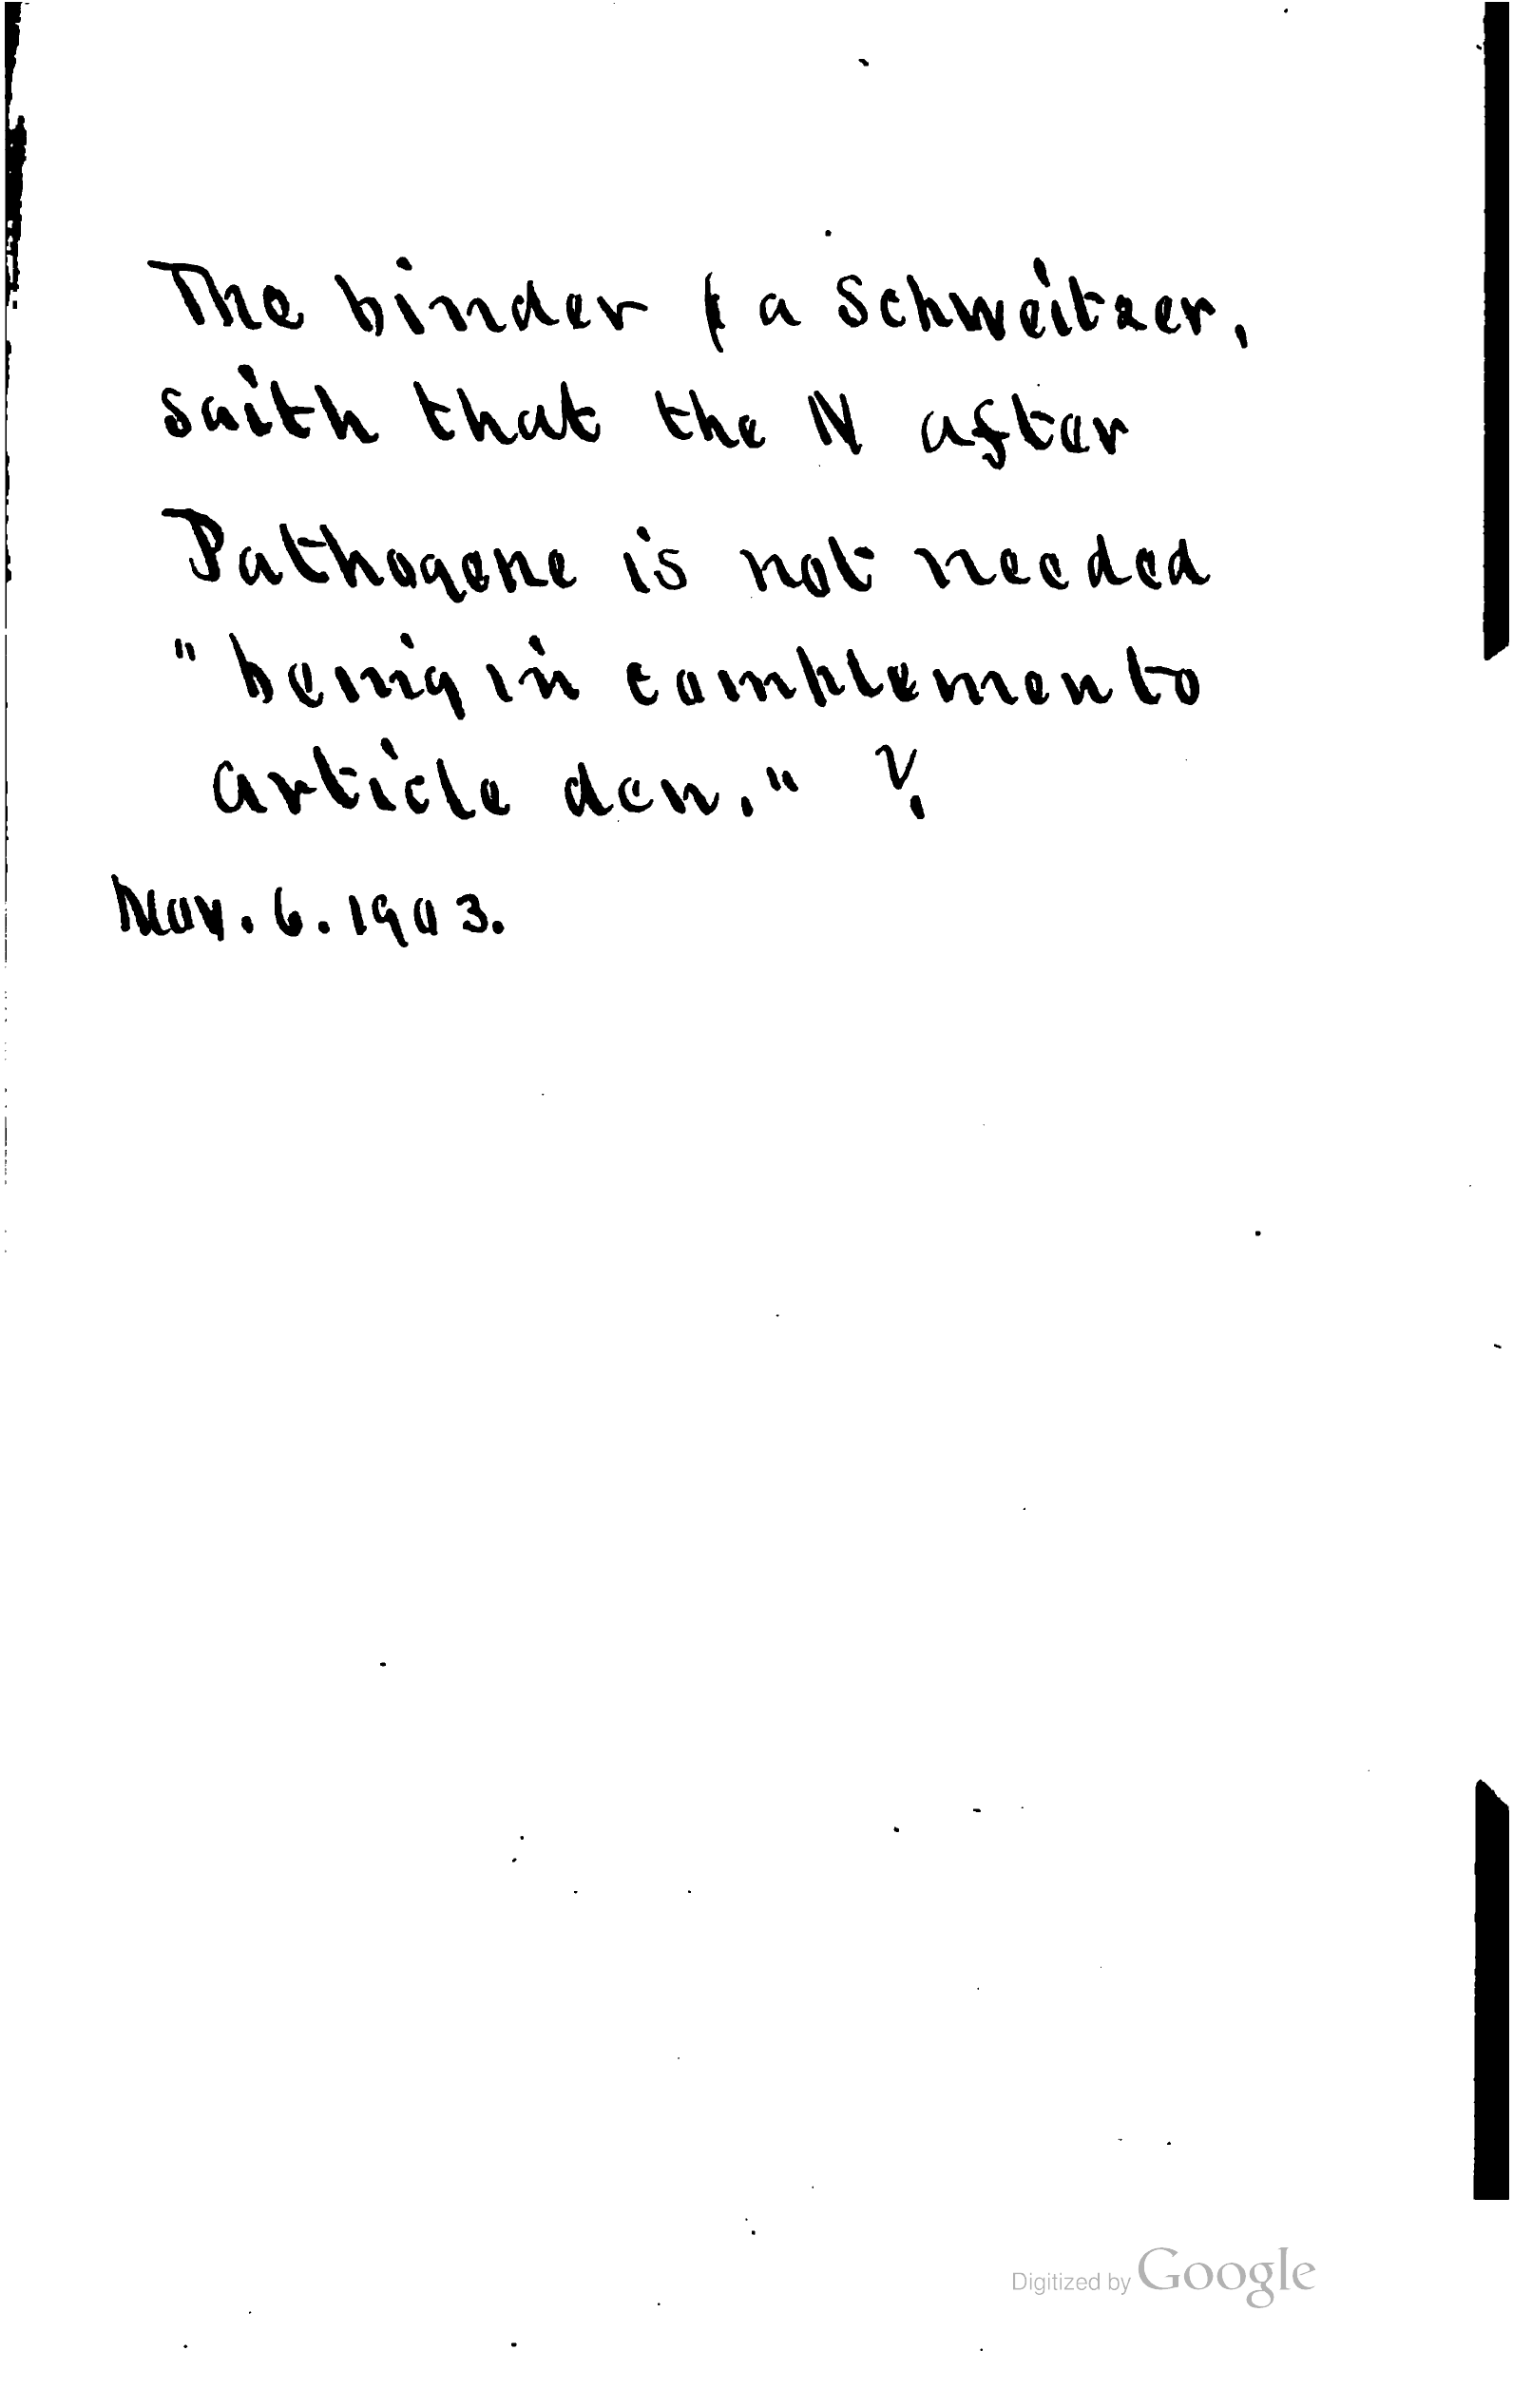 The binder (a Schweitzer,
saith that the N after
Pathogene is not needed
"being in complemento
article den." ?
Nov. 6. 1903.
Digitized by Google